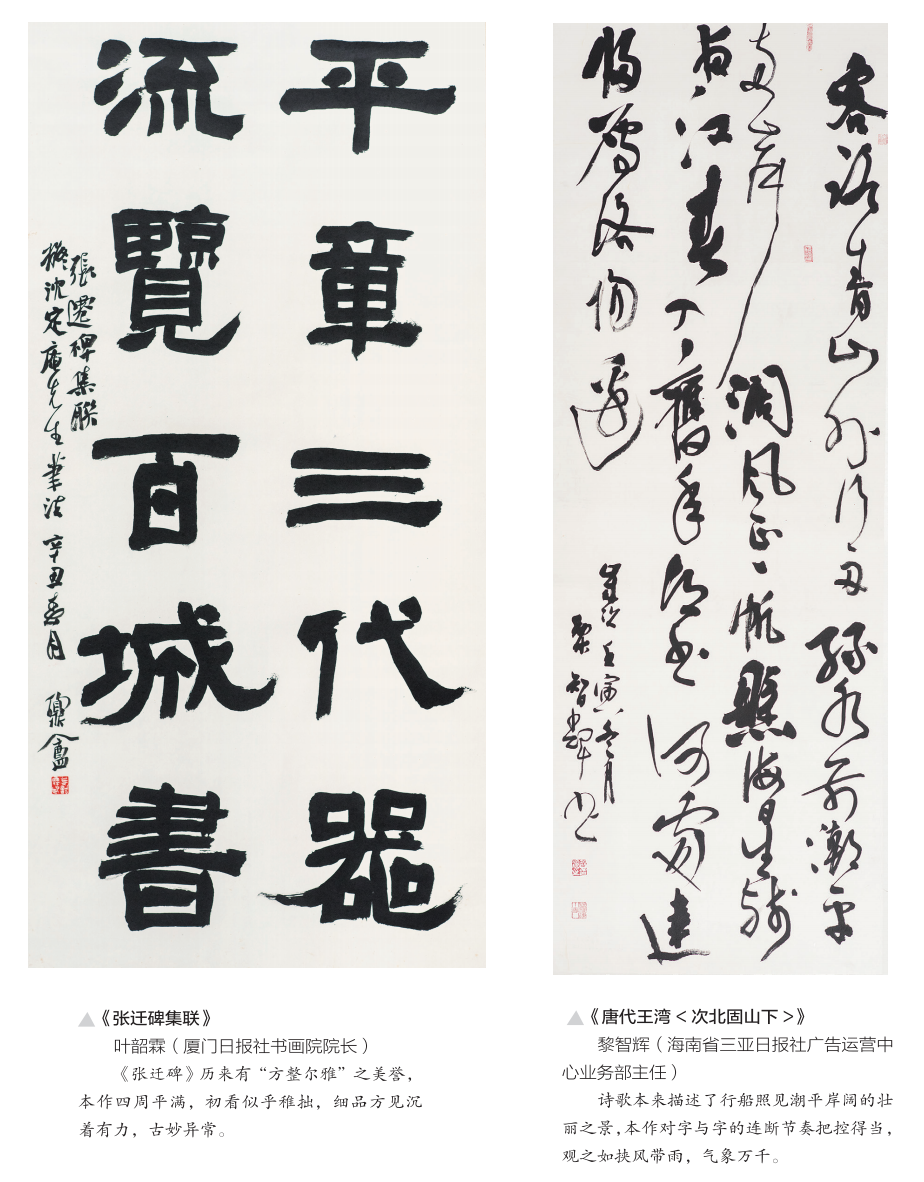 平章三代器
流覽百城書
張遷碑集聯
擬沈定庵先生筆法 辛丑春月
客路青山外行舟綠水前潮平
兩岸闊風正一帆懸海日生殘
夜江春入舊年鄉書何處達
歸雁洛陽邊
壬寅冬月
黎智輝書
《张迁碑集联》
叶韶霖（厦门日报社书画院院长）
《张迁碑》历来有“方整尔雅”之美誉，
本作四周平满，初看似乎稚拙，细品方见沉
着有力，古妙异常。
《唐代王湾<次北固山下>》
黎智辉（海南省三亚日报社广告运营中
心业务部主任）
诗歌本来描述了行船照见潮平岸阔的壮
丽之景，本作对字与字的连断节奏把控得当，
观之如挟风带雨，气象万千。